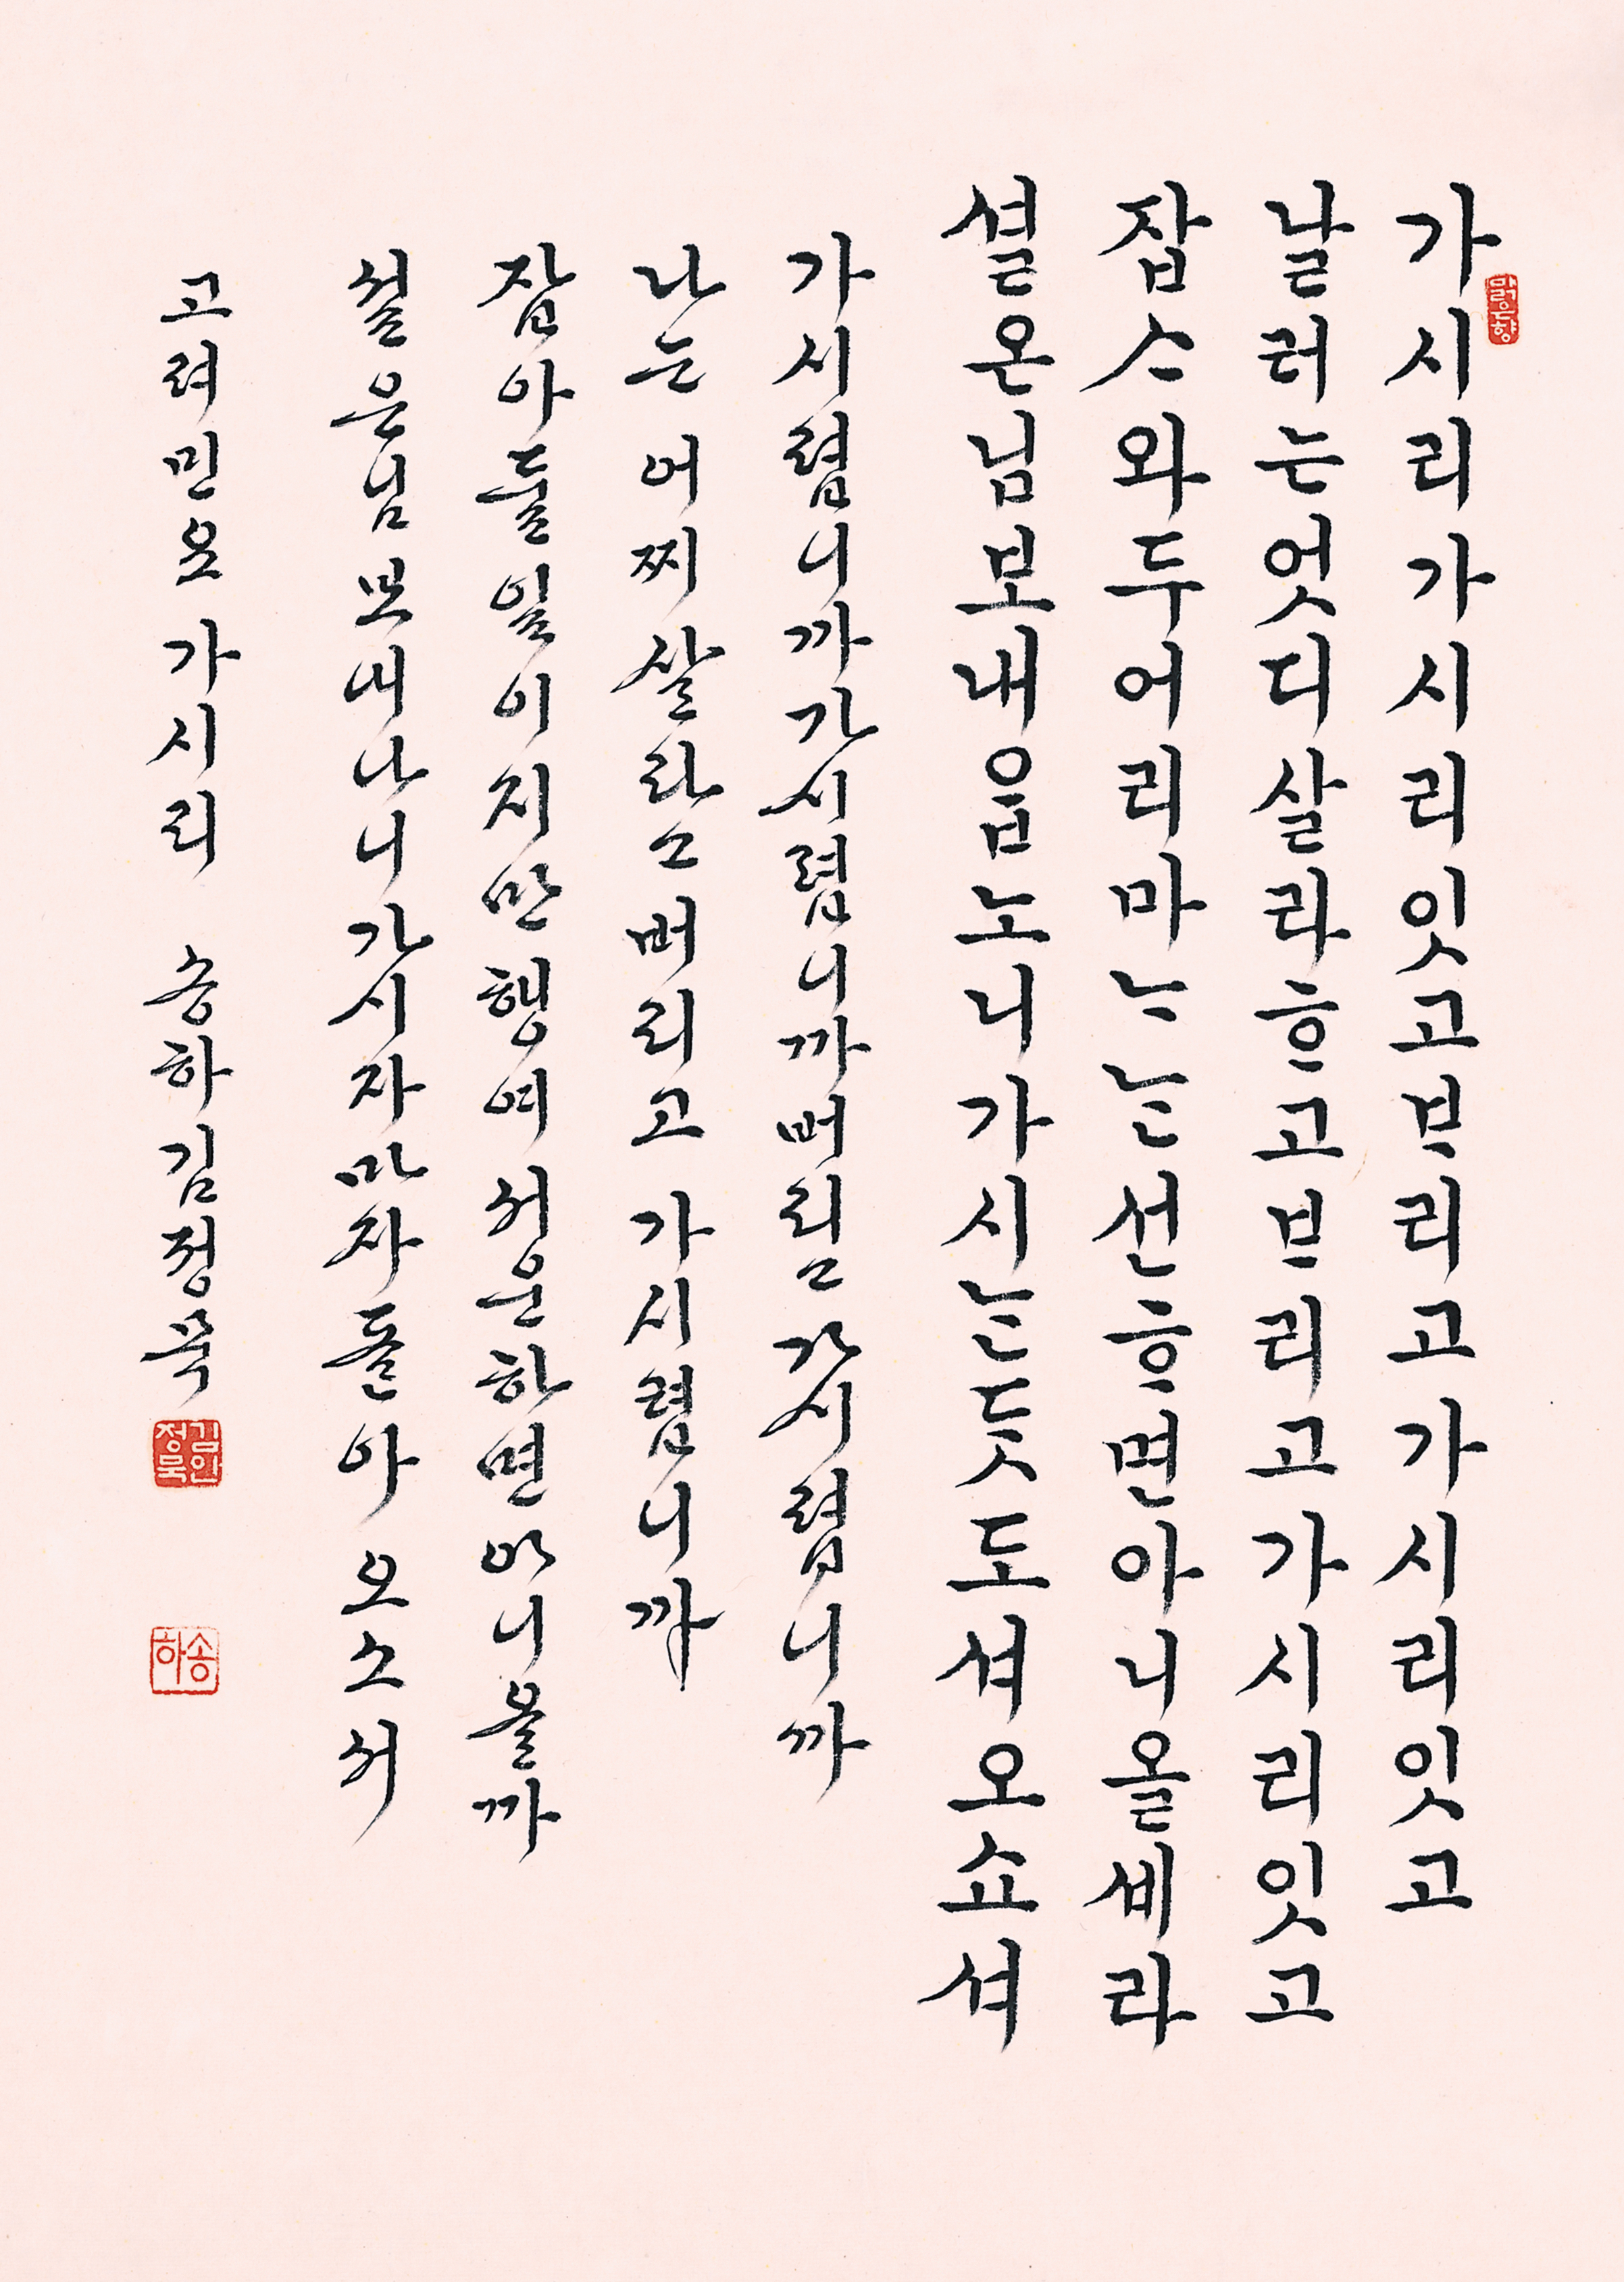 맑은향
가시리가시리잇고ᄇᆞ리고가시리잇고
날러는엇디살라ᄒᆞ고ᄇᆞ리고가시리잇고
잡ᄉᆞ와두어리마ᄂᆞᄂᆞᆫ선ᄒᆞ면아니올셰라
셜온님보내ᄋᆞᆸ노니가시ᄂᆞᆫᄃᆞᆺ도셔오쇼셔
가시렵니까가시렵니까버리고가시렵니까
나는 어찌살라고버리고 가시렵니까
잡아둘일이지만행여 서운하면아니올까
설은님보내나니가시자마자돌아 오소서
고려민요 가시리 송하김정묵
김정묵인
송하